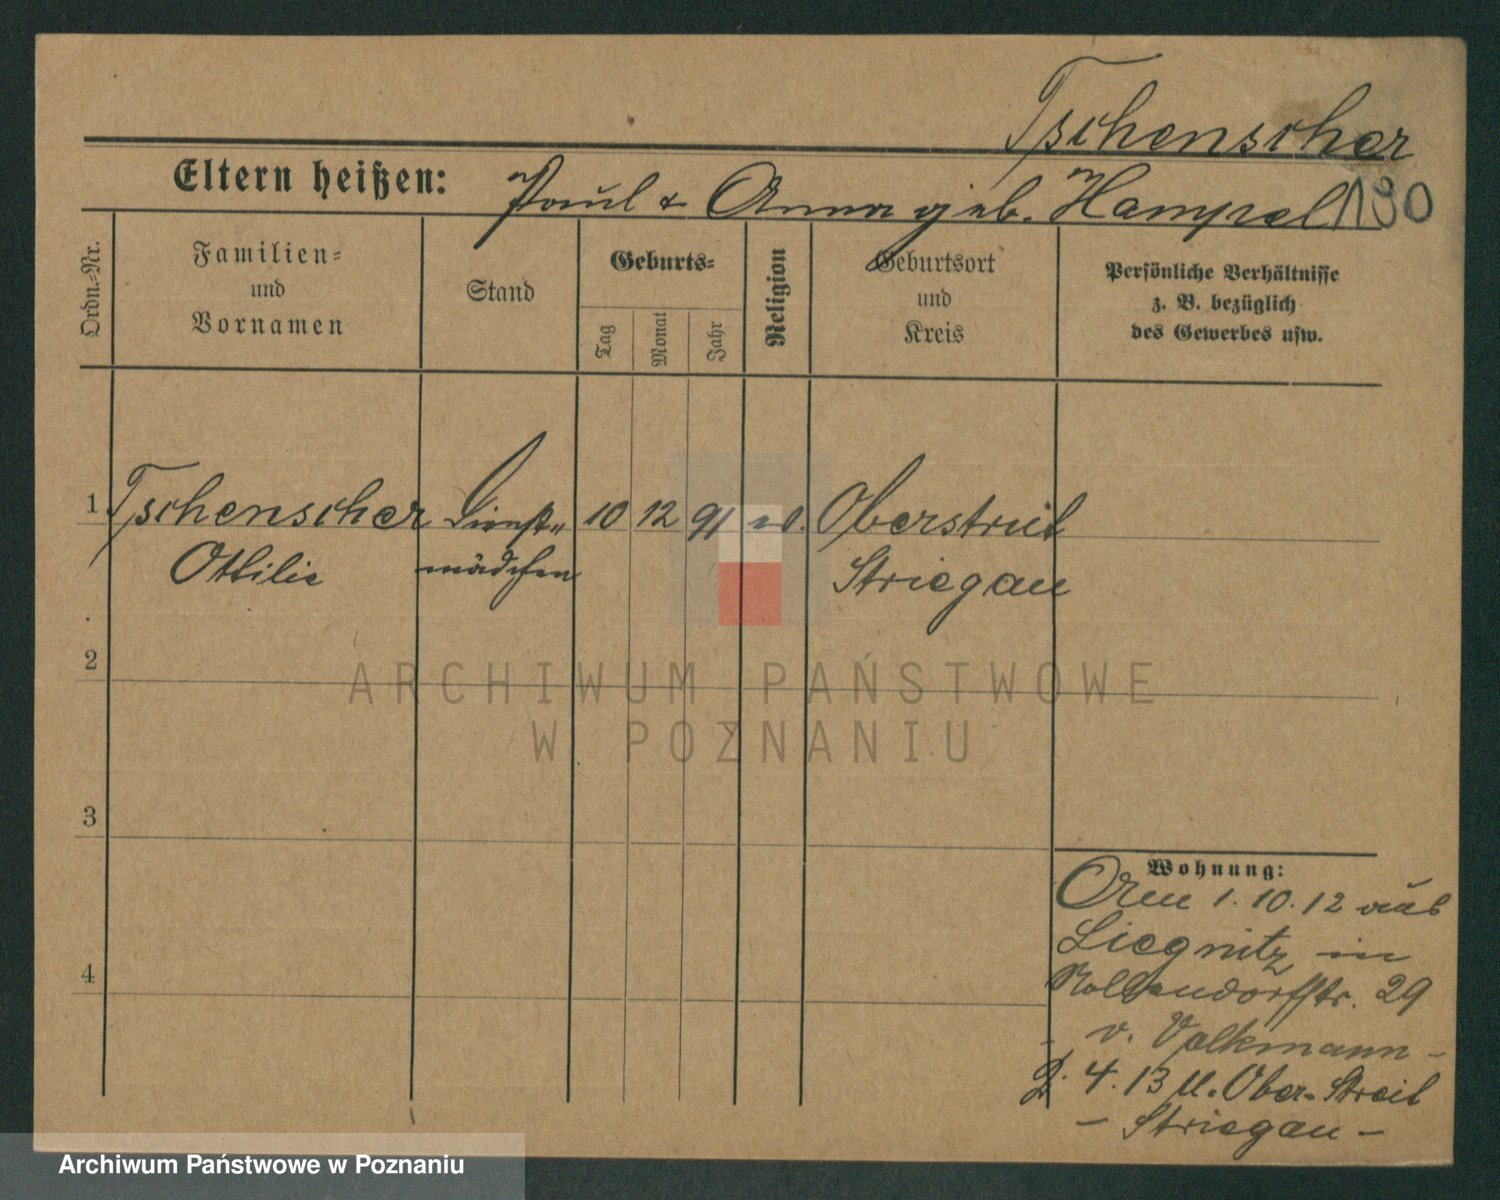 Tschenscher
Eltern heißen: Paul & Anna geb. Hampel 130
Ordn.-Nr.
Familien-
und
Vornamen
Stand
Geburts-
Tag
Monat
Jahr
Religion
Geburtsort
und
Kreis
Persönliche Verhältnisse
z. B. bezüglich
des Gewerbes usw.
1 Tschenscher Dienst= 10 12 91 ev. Oberstreit
Ottilie mädchen Striegau
2
ARCHIWUM PAŃSTWOWE
W POZNANIU
3
Wohnung:
Am 1.10.12 aus
Liegnitz in
4
29
v. Volkmann -
2. 4. 13 n. Ober-Streit
- Striegau -
Archiwum Państwowe w Poznaniu